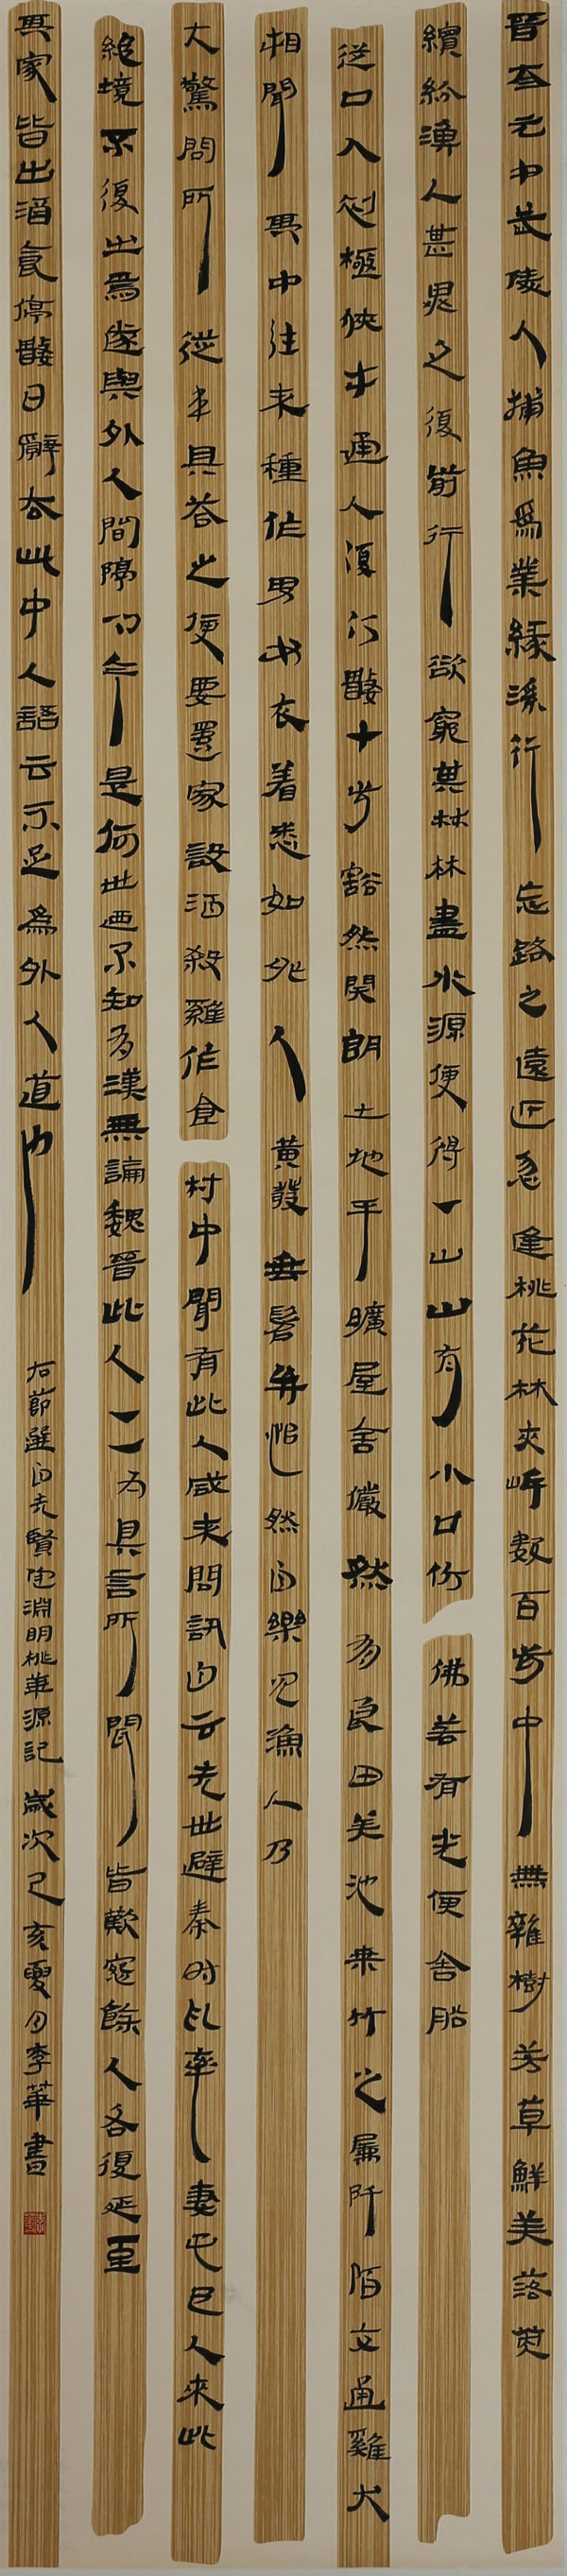 晉太元中武陵人捕魚為業緣溪行忘路之遠近忽逢桃花林夾岸數百步中無雜樹芳草鮮美落英
繽紛漁人甚異之復前行欲窮其林林盡水源便得一山山有小口彷佛若有光便舍船
從口入初極狹才通人復行數十步豁然開朗土地平曠屋舍儼然有良田美池桑竹之屬阡陌交通雞犬
相聞其中往來種作男女衣着悉如外人黃髮垂髫并怡然自樂見漁人乃
大驚問所從來具答之便要還家設酒殺雞作食村中聞有此人咸來問訊自云先世避秦時亂率妻子邑人來此
絕境不復出焉遂與外人間隔問今是何世迺不知有漢無論魏晉此人一一為具言所聞皆歎惋餘人各復延至
其家皆出酒食停數日辭去此中人語云不足為外人道也
右節選自先賢陶淵明桃華源記歲次己亥夏月李華書